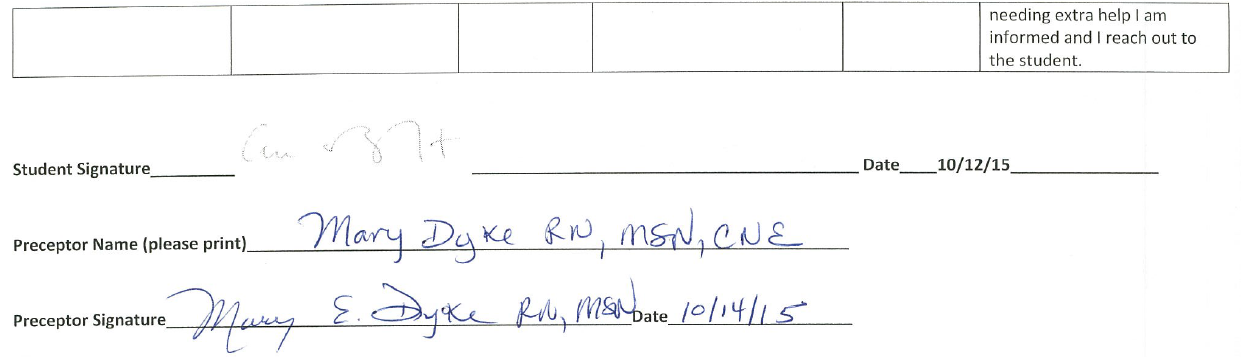 needing extra help I am
informed and I reach out to
the student.
Student Signature Date 10/12/15
Preceptor Name (please print) Mary Dyke RN, MSN, CNE
Preceptor Signature Mary E. Dyke RN, MSN Date 10/14/15